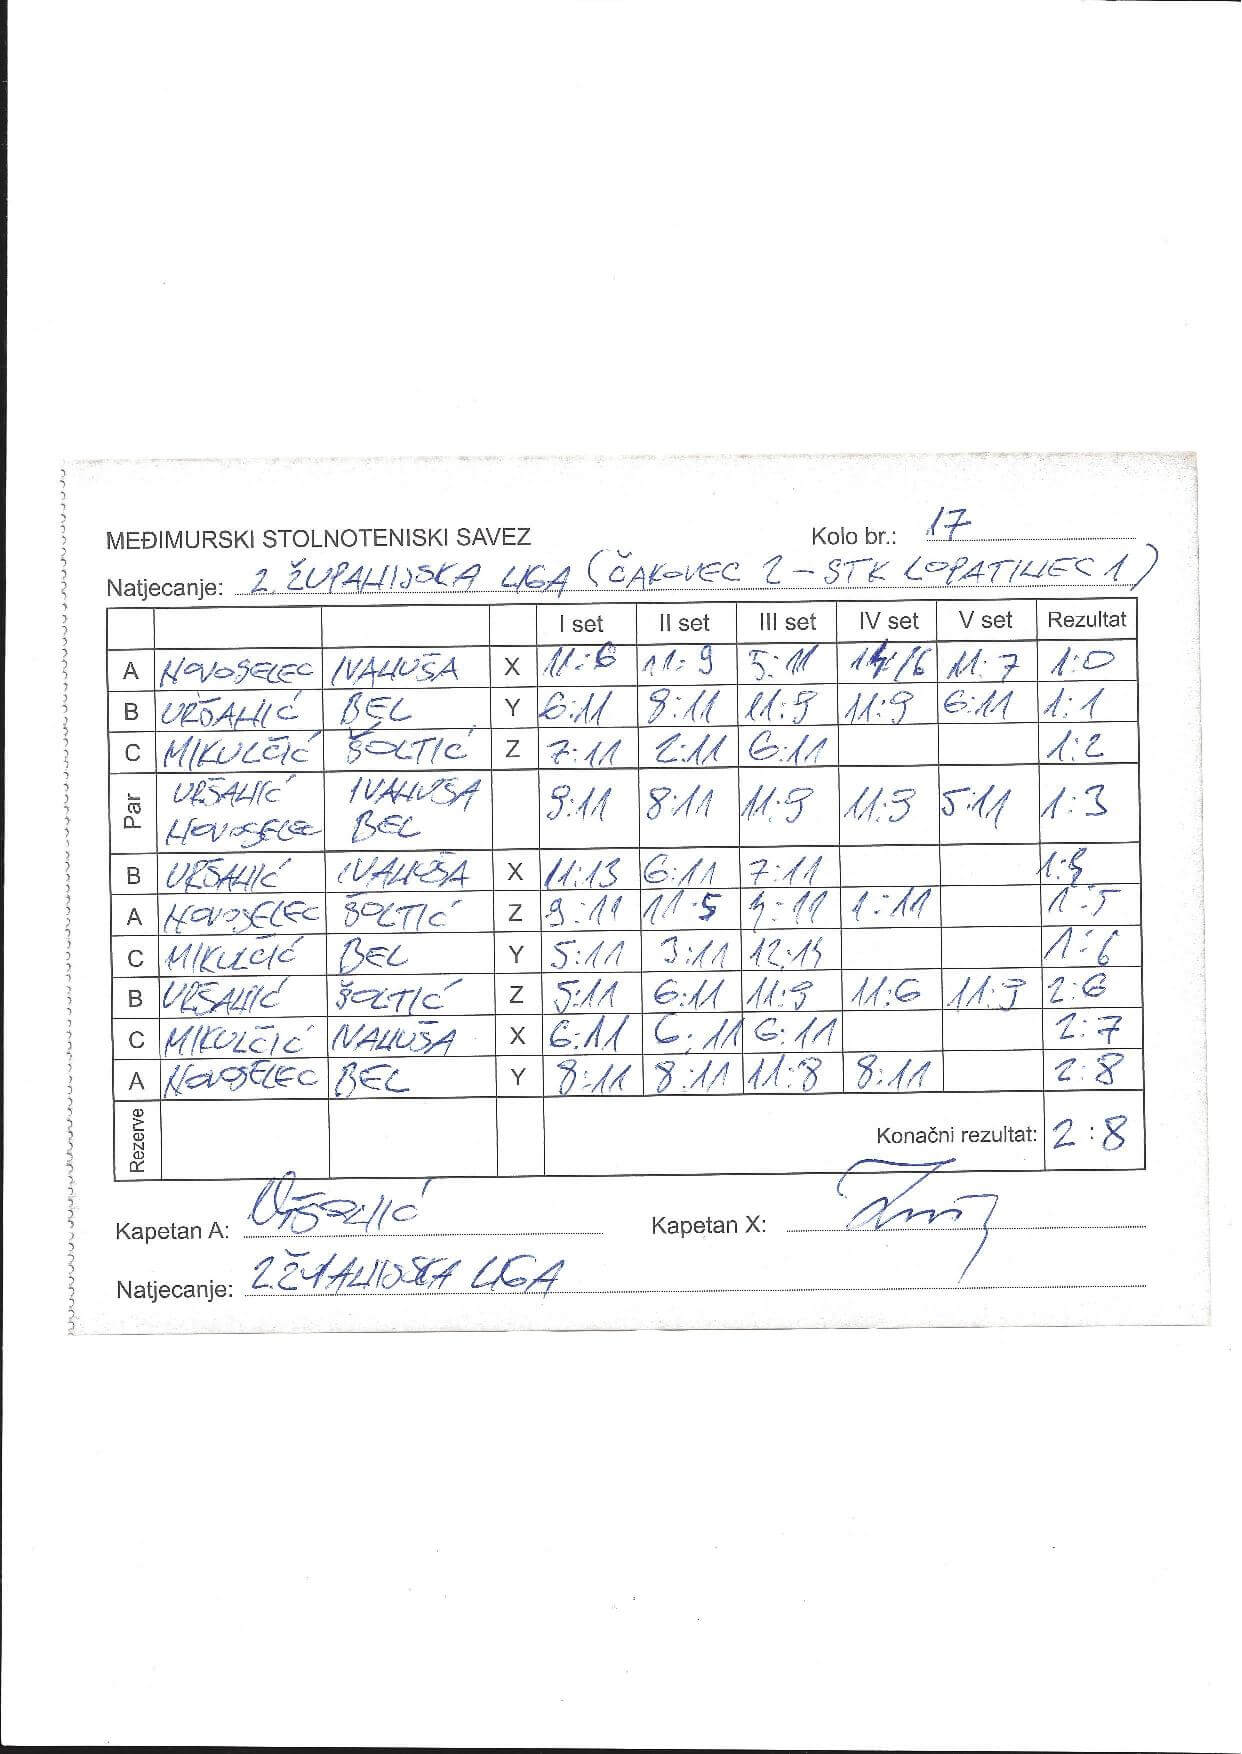 MEĐIMURSKI STOLNOTENISKI SAVEZ Kolo br.: 17
Natjecanje: 2. ŽUPANIJSKA LIGA (ČAKOVEC 2 - STK LOPATINEC 1)
I set II set III set IV set V set Rezultat
A NOVOSELEC IVANUŠA X 11:6 11:9 5:11 11:7 1:0
B URŠANIĆ BEL Y 6:11 8:11 11:9 11:9 6:11 1:1
C MIKULČIĆ ŠOLTIĆ Z 7:11 2:11 6:11 1:2
Par URŠANIĆ IVANUŠA 9:11 8:11 11:9 11:9 5:11 1:3
NOVOSELEC BEL
B URŠANIĆ IVANUŠA X 11:13 6:11 7:11
A NOVOSELEC ŠOLTIĆ Z 9:11 11:5 11 1:11 1:5
C MIKULČIĆ BEL Y 5:11 3:11 1:6
B URŠANIĆ ŠOLTIĆ Z 5:11 6:11 11:9 11:6 11:9 2:6
C MIKULČIĆ IVANUŠA X 6:11 6:11 6:11 2:7
A NOVOSELEC BEL Y 8:11 8:11 11:8 8:11 2:8
Rezerve Konačni rezultat: 2:8
Kapetan A: URŠANIĆ Kapetan X:
Natjecanje: 2. ŽUPANIJSKA LIGA